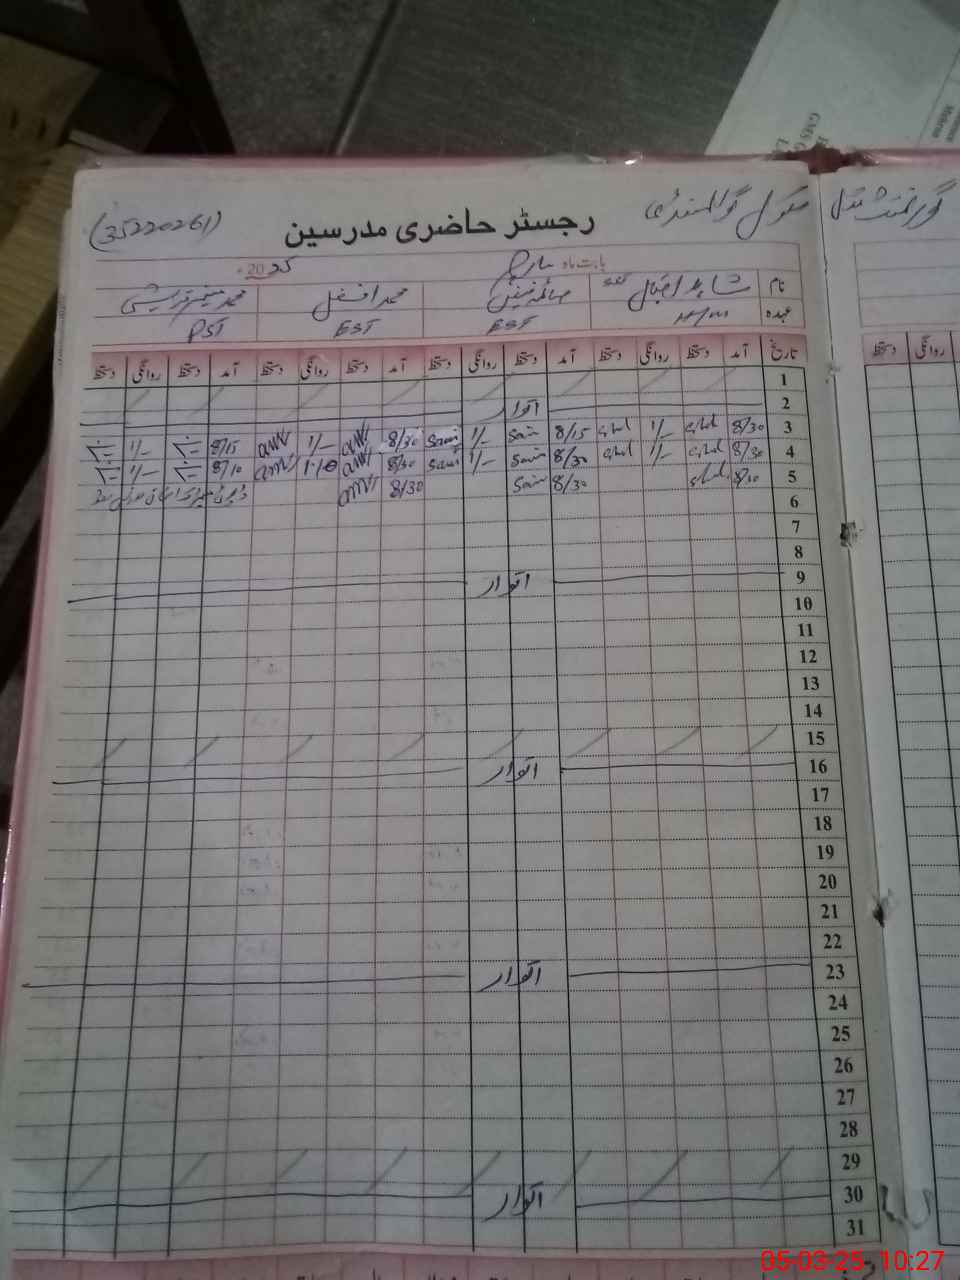 گورنمنٹ مڈل سکول گوالمنڈی
رجسٹر حاضری مدرسین
(35220261)
بابت ماہ مارچ 2025
نام شاہد اقبال صائمہ محمد افضل محمد قریشی
عہدہ H/M EST EST PST
تاریخ آمد دستخط روانگی دستخط آمد دستخط روانگی دستخط آمد دستخط روانگی دستخط آمد دستخط روانگی دستخط
1
2 اتوار
3 8/30 shd 1/- shd 8/15 Saim 1/- Saim 8/30 1/- 8/15 1/-
4 8/30 shd 1/- shd 8/30 Saim 1/- Saim 8/30 1/10 8/10 1/-
5 8/30 shd 8/30 Saim 8/30
6
7
8
9 اتوار
10
11
12
13
14
15
16 اتوار
17
18
19
20
21
22
23 اتوار
24
25
26
27
28
29
30 اتوار
31
دستخط روانگی
05-03-25 10:27